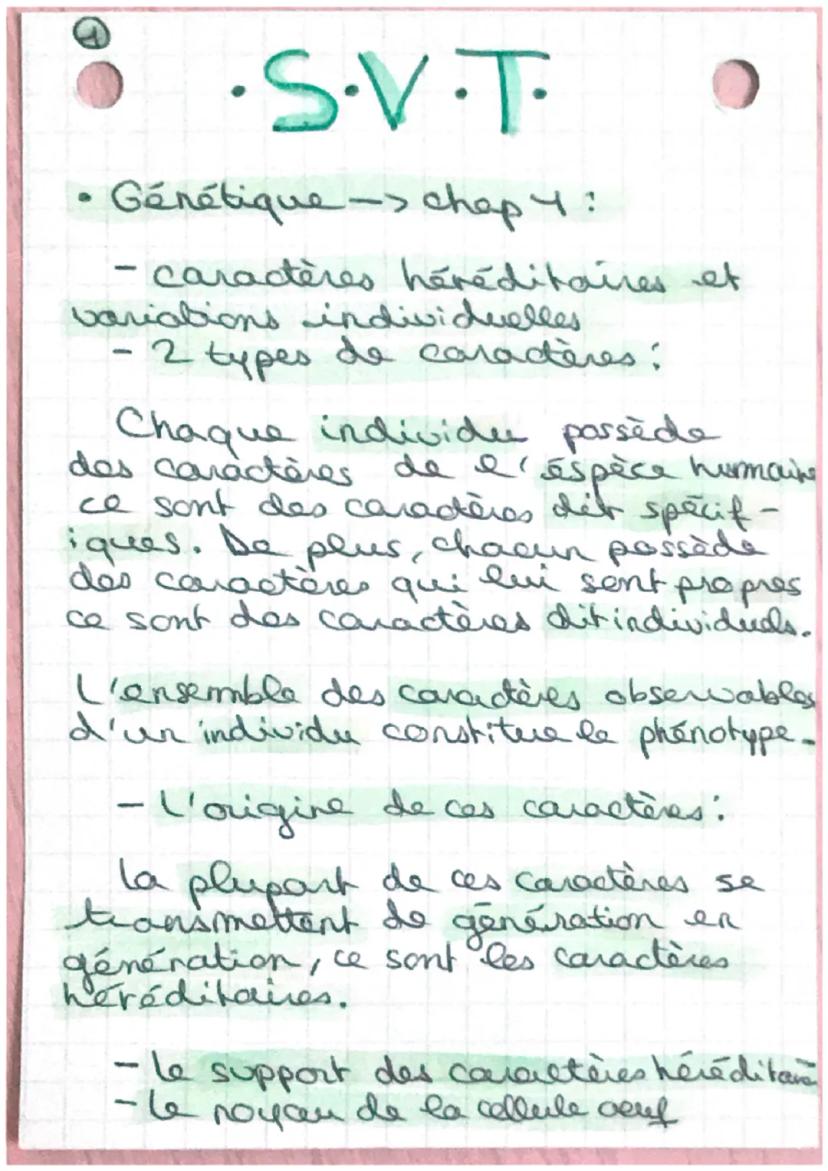 1
• S • V • T •
• Génétique -> chap 1 :
- caractères héréditaires et
variations individuelles
- 2 types de caractères :
Chaque individu possède
des caractères de l'éspèce humaine
ce sont des caractères dit spécif-
iques. De plus, chacun possède
des caractères qui lui sont propres
ce sont des caractères dit individuels.
L'ensemble des caractères observables
d'un individu constitue le phénotype.
- L'origine de ces caractères :
La plupart de ces caractères se
transmettent de génération en
génération, ce sont les caractères
héréditaires.
- Le support des caractères héréditaire
- Le noyau de la cellule oeuf